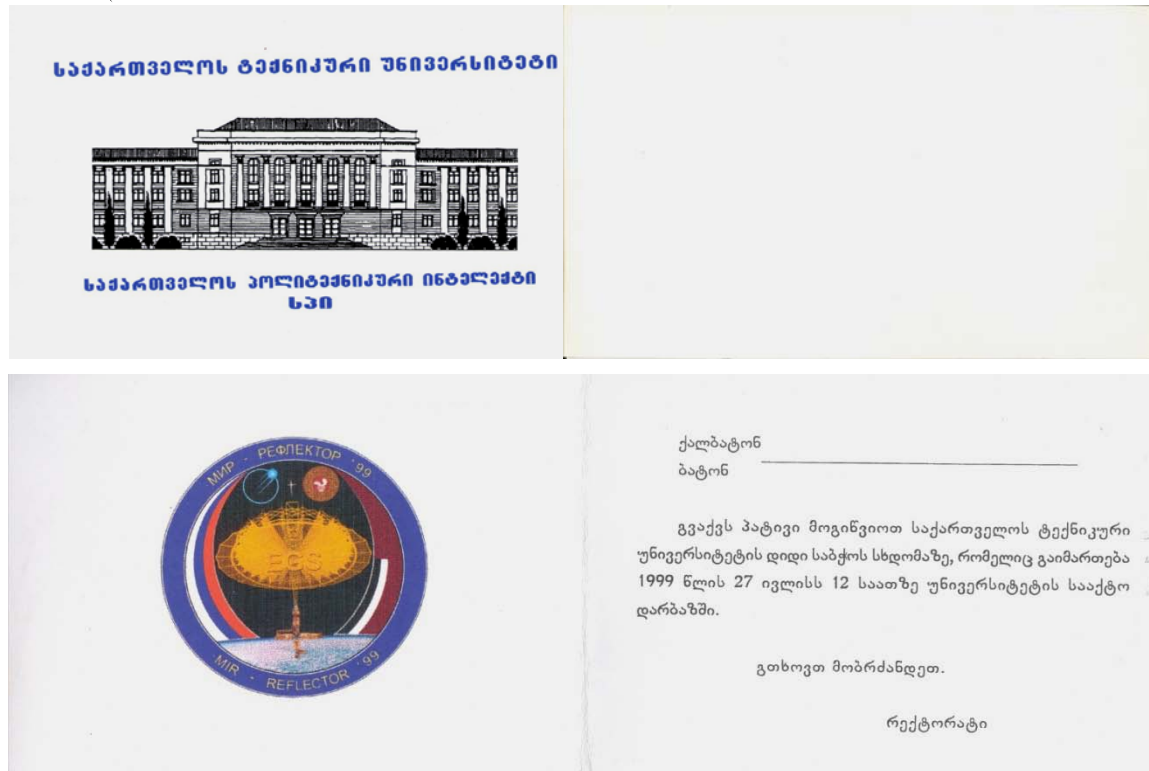 საქართველოს ტექნიკური უნივერსიტეტი
საქართველოს პოლიტექნიკური ინტელექტი
სპი
МИР · РЕФЛЕКТОР '99
EGS
MIR · REFLECTOR '99
ქალბატონ
ბატონ
გვაქვს პატივი მოგიწვიოთ საქართველოს ტექნიკური
უნივერსიტეტის დიდი საბჭოს სხდომაზე, რომელიც გაიმართება
1999 წლის 27 ივლისს 12 საათზე უნივერსიტეტის სააქტო
დარბაზში.
გთხოვთ მობრძანდეთ.
რექტორატი